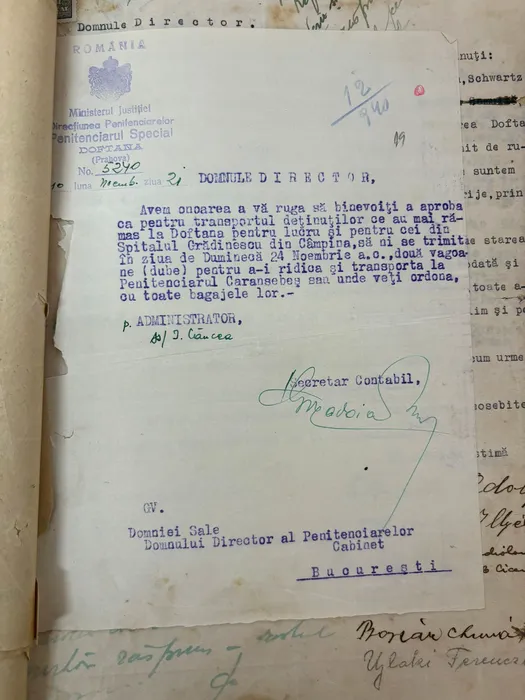 Domnule Director.
ROMÂNIA
Ministerul Justiției
Direcțiunea Penitenciarelor
Penitenciarul Special
DOFTANA
(Prahova)
No. 5240
luna Noemb. ziua 21
12/940
19
DOMNULE DIRECTOR,
Avem onoarea a vă ruga să binevoiți a aproba
ca pentru transportul deținuților ce au mai ră-
mas la Doftana pentru lucru și pentru cei din
Spitalul Grădinescu din Câmpina, să ni se trimite
în ziua de Duminecă 24 Noembrie a.c., două vagoa-
ne (dube) pentru a-i ridica și transporta la
Penitenciarul Caransebeș sau unde veți ordona,
cu toate bagajele lor.-
p. ADMINISTRATOR,
ss/ I. Câncea
Secretar Contabil,
GV.
Domniei Sale
Domnului Director al Penitenciarelor
Cabinet
București
nuți:
, Schwartz
ea Dofta
mit de ru-
suntem
rije, prin
e starea
dată și
toate a-
im și pe
cum urme
osebite
stimă
răspuns
Bosián
Ujlaki Ferencz